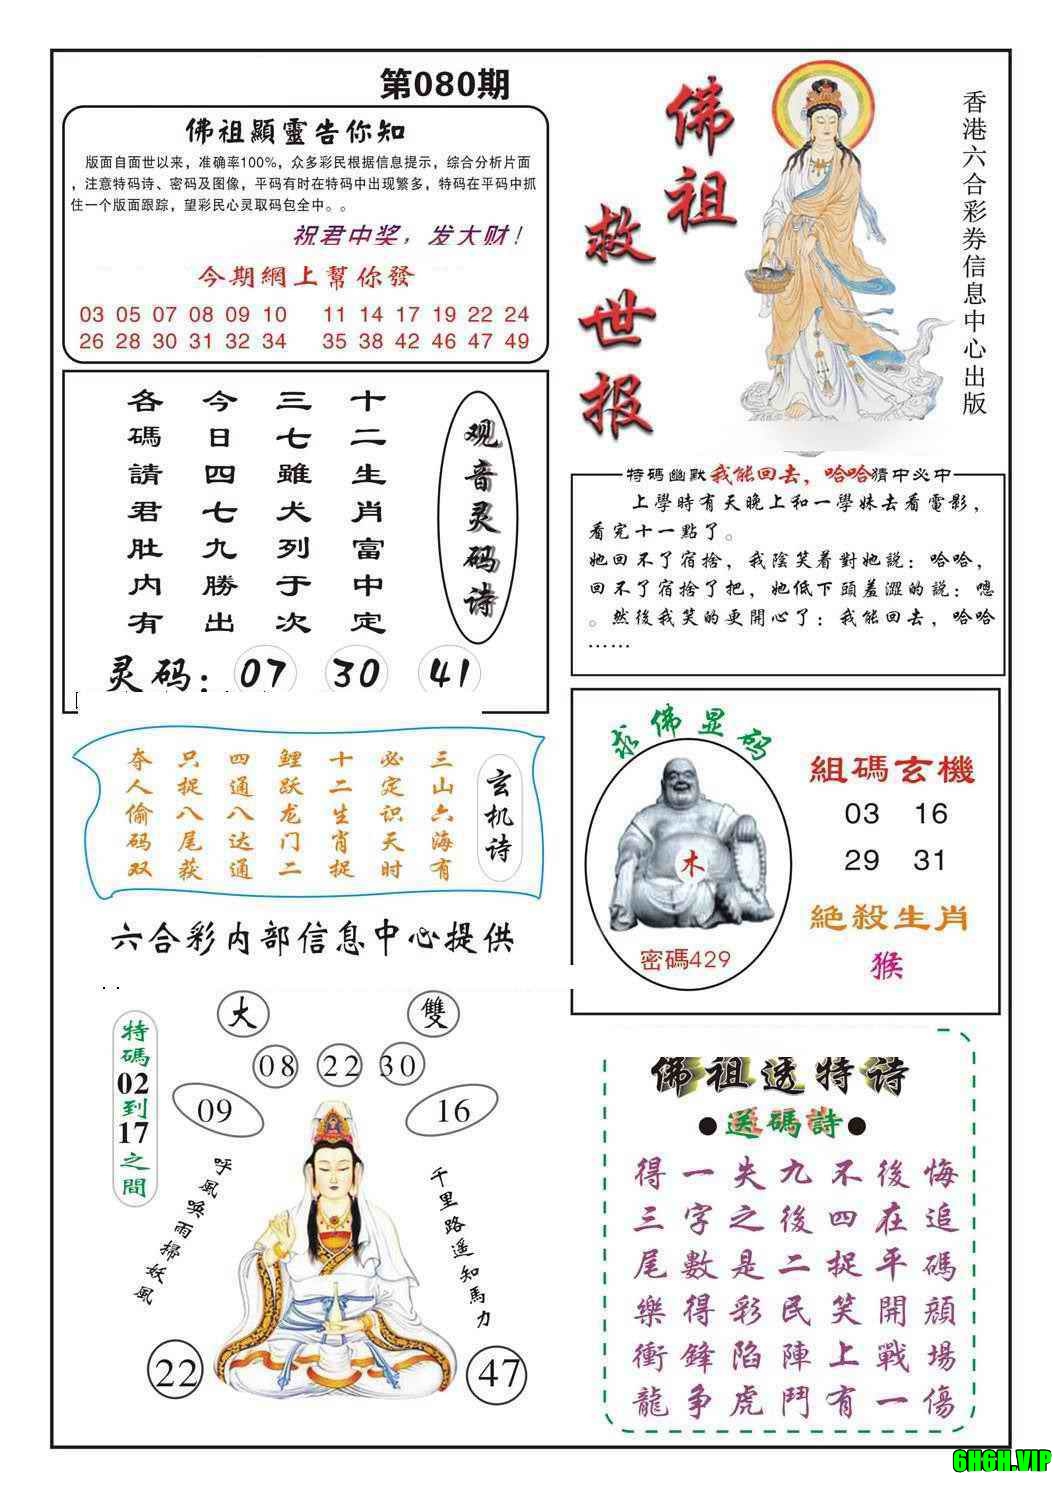 第080期
佛祖顯靈告你知
版面自面世以来，准确率100%，众多彩民根据信息提示，综合分析片面
，注意特码诗、密码及图像，平码有时在特码中出现繁多，特码在平码中抓
住一个版面跟踪，望彩民心灵取码包全中。。
祝君中奖，发大财！
今期網上幫你發
03 05 07 08 09 10 11 14 17 19 22 24
26 28 30 31 32 34 35 38 42 46 47 49
佛祖
救世报
香港六合彩券信息中心出版
观音灵码诗
十二生肖富中定
三七雖犬列于次
今日四七九勝出
各碼請君肚内有
灵码：07 30 41
特码幽默我能回去，哈哈猜中必中
上學時有天晚上和一學妹去看電影，
看完十一點了。
她回不了宿捨，我陰笑着對她説：哈哈，
回不了宿捨了把，她低下頭羞澀的説：嗯
。然後我笑的更開心了：我能回去，哈哈
……
玄机诗
三山六海有
必定识天时
十二生肖捉
鲤跃龙门二
四通八达通
只捉八尾获
夺人偷码双
六合彩内部信息中心提供
求佛显码
木
密碼429
組碼玄機
03 16
29 31
絕殺生肖
猴
特碼02到17之間
大 雙
08 22 30
09 16
呼風唤雨掃妖風
千里路遥知馬力
22 47
佛祖透特诗
●送碼詩●
得一失九不後悔
三字之後四在追
尾數是二捉平碼
樂得彩民笑開顔
衝鋒陷陣上戰場
龍争虎鬥有一傷
6H6H.VIP